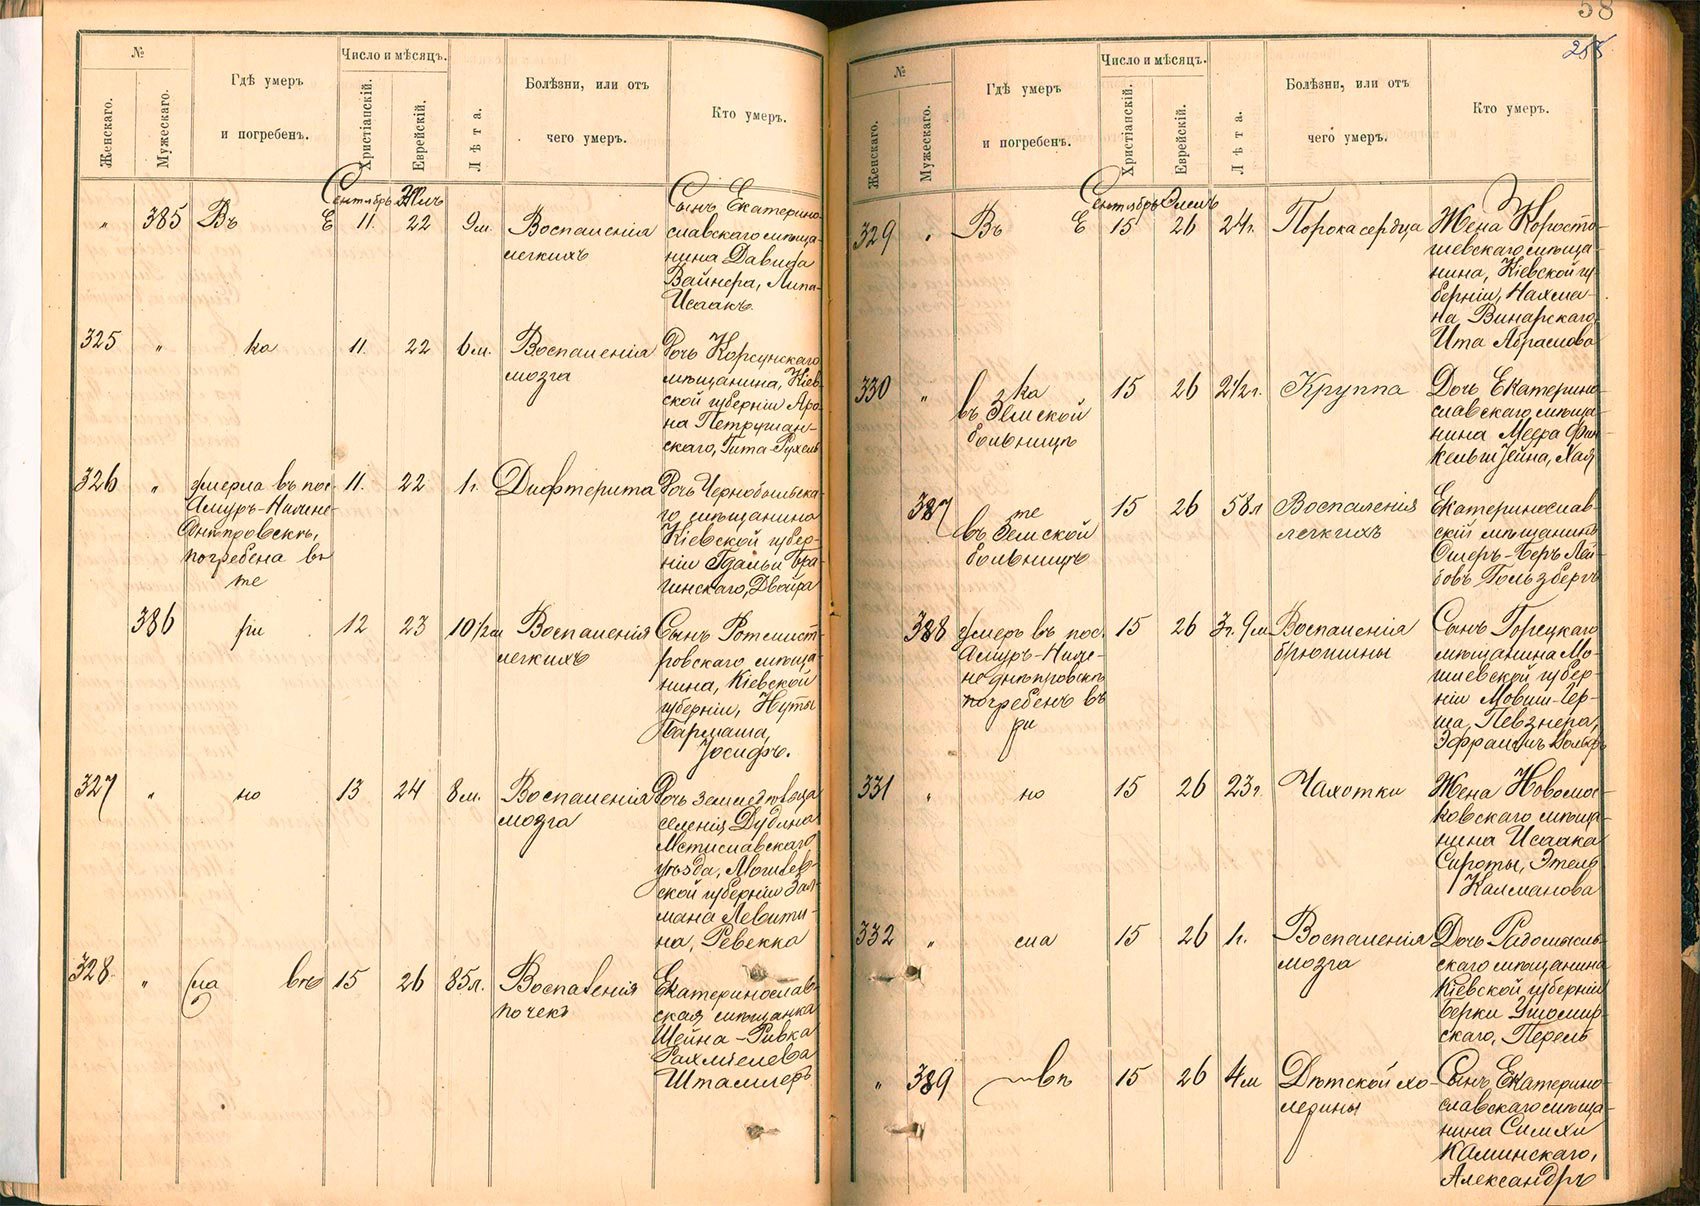 №
Число и мѣсяцъ.
Женскаго.
Мужескаго.
Гдѣ умеръ
и погребенъ.
Христіанскій.
Еврейскій.
Лѣта.
Болѣзни, или отъ
чего умеръ.
Кто умеръ.
Сентябрь Элилъ
„ 385 Въ Е 11. 22 9 м.
Воспаленія
легкихъ
Сынъ Екатерино-
славскаго мѣща-
нина Давида
Вайнера, Липа-
Исаакъ.
325 „ ка 11. 22 6 м.
Воспаленія
мозга
Дочь Корсунскаго
мѣщанина, Кіев-
ской губерніи Аро-
на Петрушан-
скаго, Гита-Рухель
326 „
умерла въ пос.
Амуръ-Нижне-
Днѣпровскѣ,
погребена въ
те
11. 22 1 г.
Дифтерита
Дочь Чернобыльска-
го мѣщанина
Кіевской губер-
ніи Гдальи Бра-
гинскаго, Двойра
386 ри 12 23 10½ м
Воспаленія
легкихъ
Сынъ Ротмист-
ровскаго мѣща-
нина, Кіевской
губерніи, Нуты
Бармаша,
Іосифъ.
327 „ но 13 24 8 м.
Воспаленія
мозга
Дочь земледѣльца
селенія Дудина
Мстиславскаго
уѣзда, Могилев-
ской губерніи Зал-
мана Левити-
на, Ревекка
328 „ сла въ 15 26 85 л.
Воспаленія
почекъ
Екатеринослав-
ская мѣщанка
Шейна-Ривка
Рахміелева
Штамлеръ
58
258
№
Число и мѣсяцъ.
Женскаго.
Мужескаго.
Гдѣ умеръ
и погребенъ.
Христіанскій.
Еврейскій.
Лѣта.
Болѣзни, или отъ
чего умеръ.
Кто умеръ.
Сентябрь Элилъ
329 „ Въ Е 15 26 24 г.
Порока сердца
Жена Коросты-
шевскаго мѣща-
нина, Кіевской гу-
берніи, Нахма-
на Винарскаго
Ита Абрамова
330 „
ка
въ Земской
больницѣ
15 26 2½ г.
Круппа
Дочь Екатерино-
славскаго мѣща-
нина Меера Фин-
кельштейна, Хая
387
те
въ Земской
больницѣ
15 26 58 л
Воспаленія
легкихъ
Екатеринослав-
скій мѣщанинъ
Ошеръ-Беръ Лей-
бовъ Гользбергъ
388
умеръ въ пос.
Амуръ-Ниж-
недѣпровскѣ
погребенъ въ
ри
15 26 3 г. 9 м
Воспаленія
брюшины
Сынъ Горецкаго
мѣщанина Мо-
гилевской губер-
ніи Мовши-Гер-
ша, Певзнера,
Эфраимъ Вольфъ
331 „ но 15 26 23 г.
Чахотки
Жена Новомос-
ковскаго мѣща-
нина Исаака
Сироты, Этель
Калманова
332 „ сла 15 26 1 г.
Воспаленія
мозга
Дочь Радомысль-
скаго мѣщанина
Кіевской губерніи
Берки Житомир-
скаго, Перель
„ 389 въ 15 26 4 м
Дѣтской хо-
лерины
Сынъ Екатерино-
славскаго мѣща-
нина Симхи
Каминскаго,
Александръ